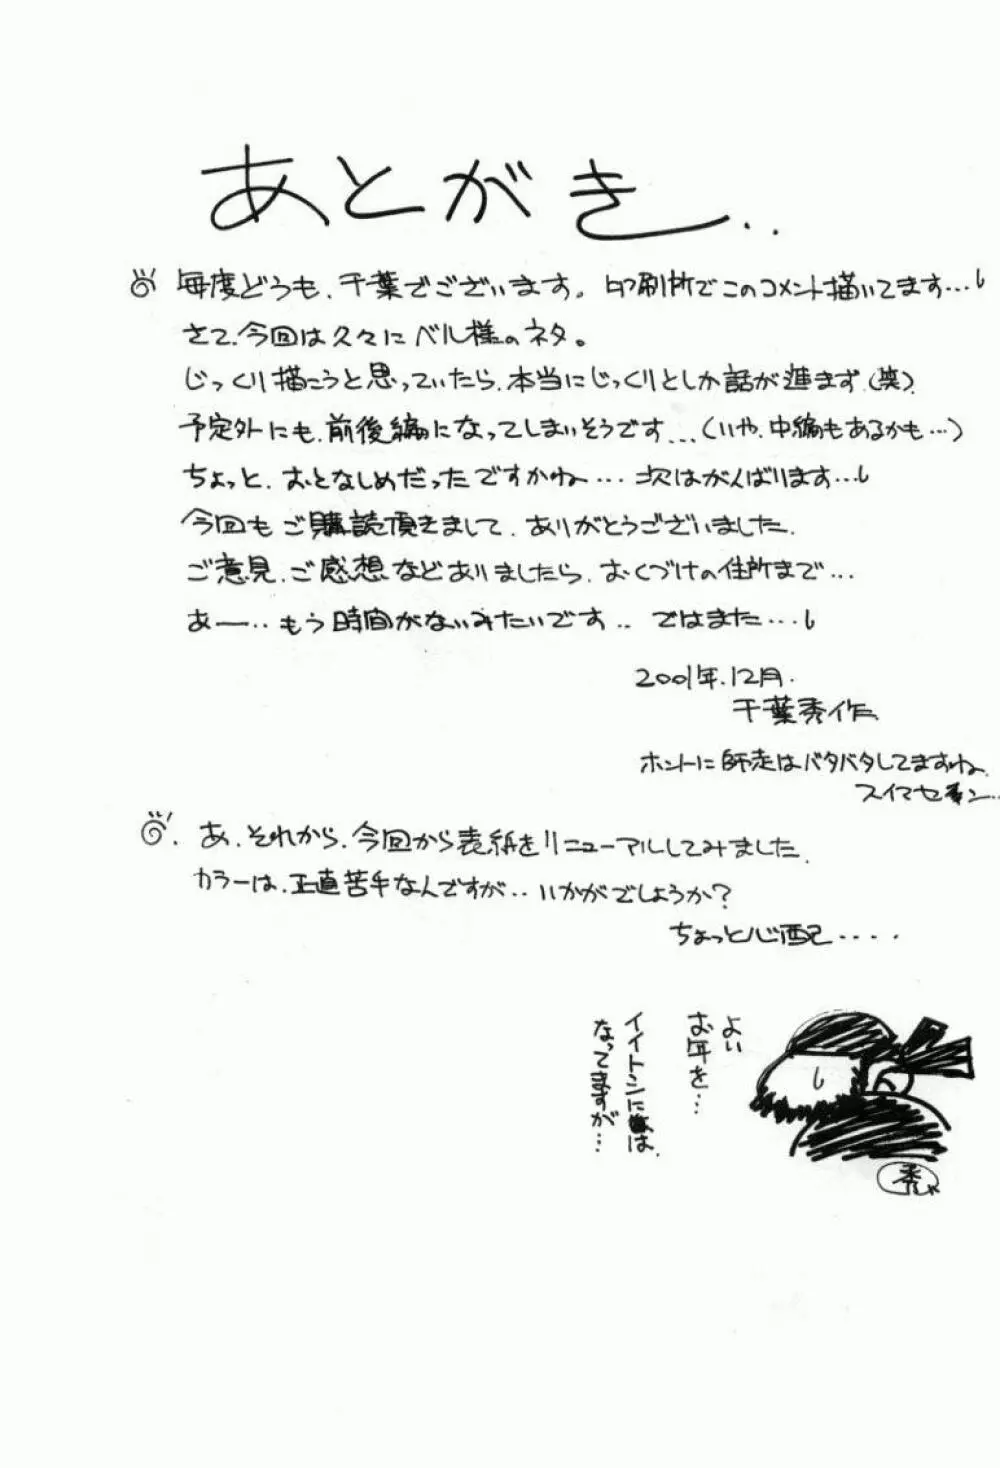 あとがき..
毎度どうも、千葉でございます。印刷所でこのコメント描いてます…
さて、今回は久々にベル様のネタ。
じっくり描こうと思っていたら、本当にじっくりとしか話が進まず、(笑).
予定外にも、前後編になってしまいそうです…(いや、中編もあるかも…)
ちょっと、おとなしめだったですかね…次はがんばります…
今回もご購読頂きまして、ありがとうございました.
ご意見、ご感想などありましたら、おくづけの住所まで…
あー…もう時間がないみたいです..ではまた…
2001年.12月.
千葉秀作
ホントに師走はバタバタしてますね.
スイマセン…
あ、それから、今回から表紙をリニューアルしてみました.
カラーは、正直苦手なんですが..いかがでしょうか?
ちょっと心配....
よい
お年を…
イイトシには、
なってますが…
秀